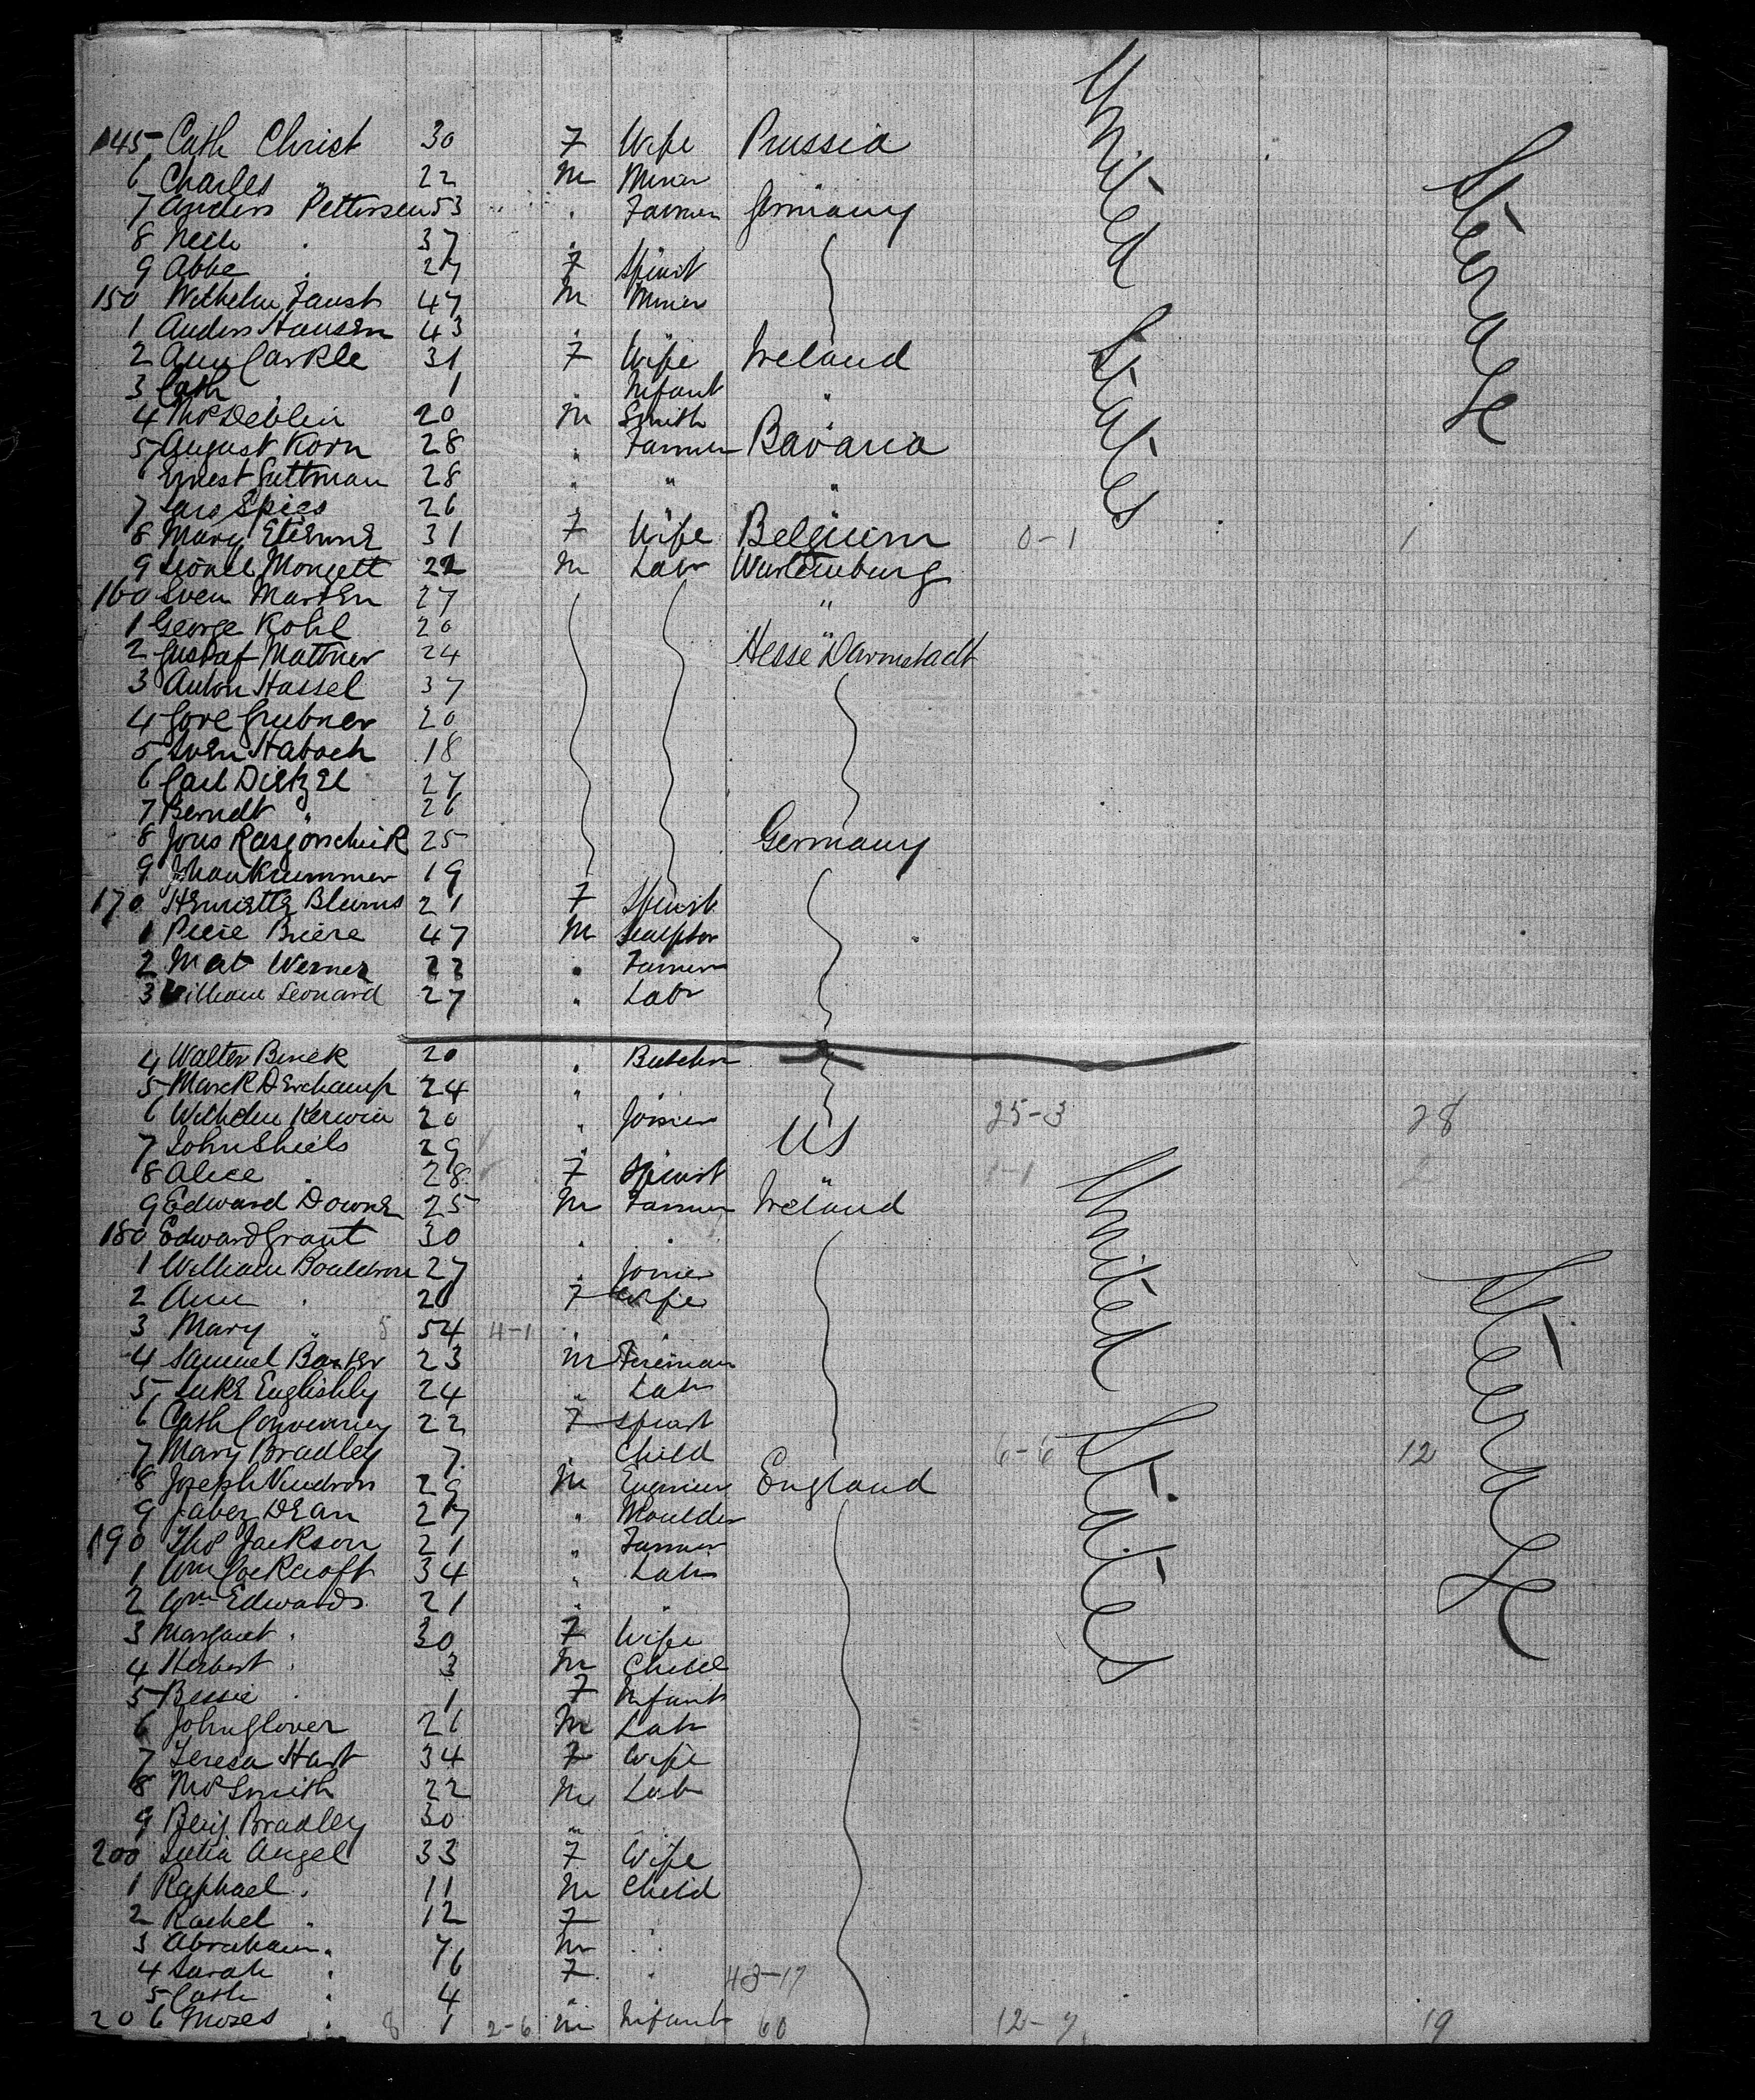 145 Cath Christ 30 F Wife Prussia
6 Charles " 22 M Miner
7 Anders Pettersen 53 " Farmer Germany
8 Neils " 37 "
9 Abbe " 27 F Spinst
150 Wilhelm Faust 47 M Miner
1 Anders Hansen 43 "
2 Ann Carkle 31 F Wife Ireland
3 Cath " 1 " Infant "
4 Thos Devlin 20 M Smith "
5 August Korn 28 " Farmer Bavaria
6 Ernest Guttman 28 " " "
7 Lars Spies 26 " " "
8 Mary Etienne 31 F Wife Belgium 0-1 1
9 Lionel Mongett 22 M Labr Wurtemburg
160 Sven Marten 27 "
1 George Kohl 20 "
2 Gustaf Mattner 24 Hesse Darmstadt
3 Anton Hassel 37
4 Gove Grubner 20
5 Sven Haboch 18
6 Carl Dietzel 27
7 Berndt " 26
8 Jons 25 Germany
9 Krummer 19
170 Henriette Blums 21 F Spinst
1 Piere Briere 47 M Sculptor
2 Mat Werner 22 " Farmer
3 William Leonard 27 " Labr
4 Walter Binek 20 " Butcher
5 Marck Derchamp 24 "
6 Wilhelm Kerwin 20 " Joiner 25-3 28
7 John Shiels 29 " US
8 Alice " 28 F Spinst " 1-1 2
9 Edward Downe 25 M Farmer Ireland
180 Edward Grant 30 " "
1 William Bouldron 27 " Joiner
2 Ann " 20 F Wife
3 Mary " 8 54 4-1 " "
4 Samuel Baxter 23 M Fireman
5 Luke Englishby 24 " Labr
6 Cath Convenney 22 F Spinst
7 Mary Bradley 7 " Child 6-6 12
8 Joseph 29 M Engineer England
9 Jabez Dean 27 " Moulder
190 Thos Jackson 21 " Farmer
1 Wm Cockcroft 34 " Labr
2 Wm Edwards 21 " "
3 Margaret " 30 F Wife
4 Herbert " 3 M Child
5 Bessie " 1 F Infant
6 John Glover 26 M Labr
7 Teresa Hart 34 F Wife
8 Thos Smith 22 M Labr
9 Benj Bradley 30 " "
200 Julia Angel 33 F Wife
1 Raphael " 11 M Child
2 Rachel " 12 F "
3 Abraham " 7 M "
4 Sarah " 6 F " 43-17
5 Cath " 4 " "
206 Moses " 8 1 2-6 M Infant 60 12-7 19
United States
Steerage
United States
Steerage